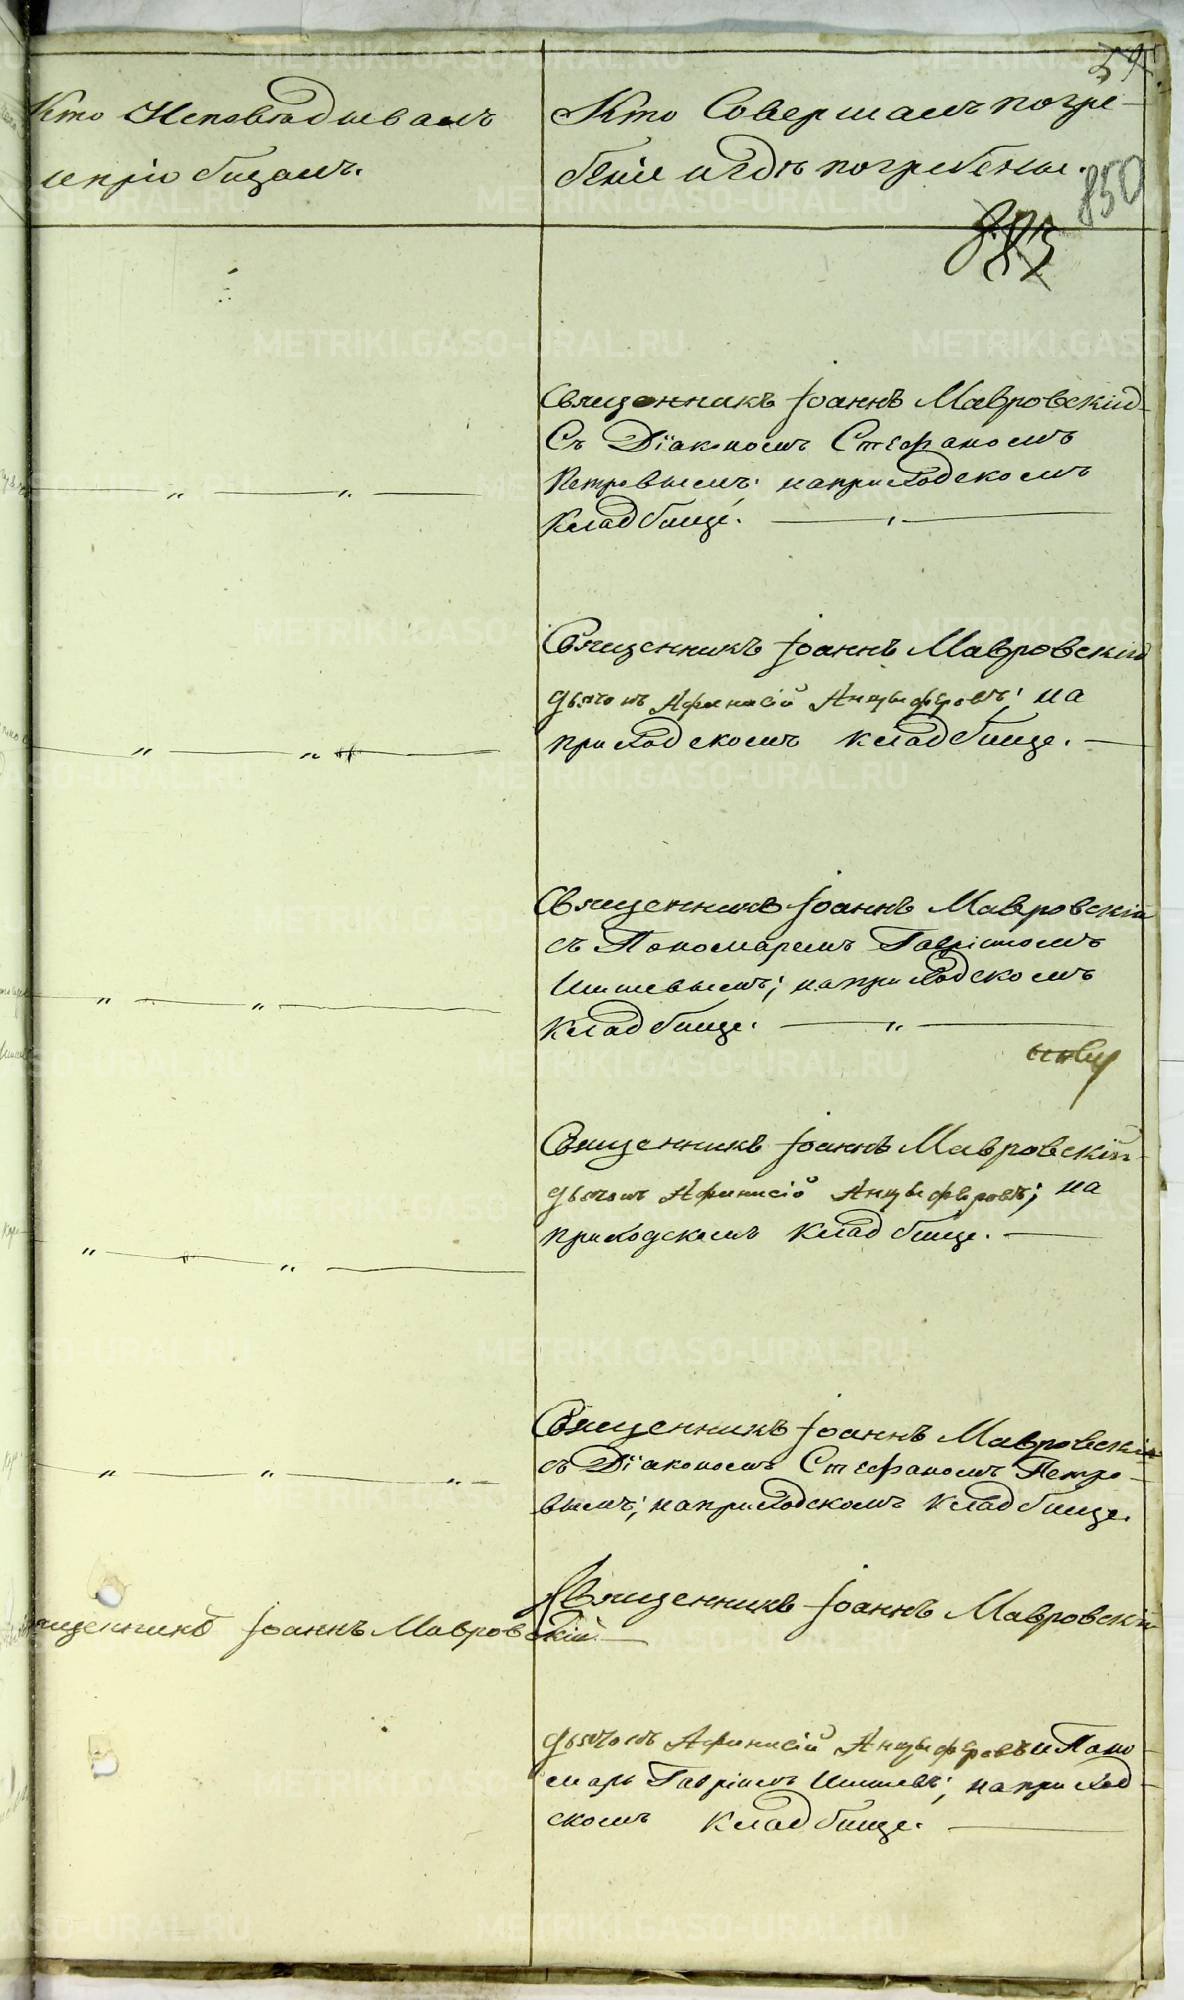 59
Кто Исповѣдывалъ
и пріобщалъ.
Кто Совершалъ погре-
беніе и гдѣ погребены.
850
Священникъ Іоаннъ Мавровскій
Съ Діакономъ Стефаномъ
Петровымъ; на приходскомъ
Кладбищѣ.
Священникъ Іоаннъ Мавровскій
дьячокъ Афанасій Анцыферовъ; на
приходскомъ кладбище.
Священникъ Іоаннъ Мавровскій
съ Пономаремъ Гавріиломъ
Шишевымъ; на приходскомъ
Кладбище.
Священникъ Іоаннъ Мавровскій
дьячокъ Афанасій Анцыферовъ; на
приходскомъ Кладбище.
Священникъ Іоаннъ Мавровскій
съ Діакономъ Стефаномъ Петро-
вымъ; на приходскомъ Кладбище.
Священникъ Іоаннъ Мавровскій
ященникъ Іоаннъ Мавровскій
дьячокъ Афанасій Анцыферовъ и Поно-
марь Гавріилъ Шишевъ; на приход-
скомъ Кладбище.
METRIKI.GASO-URAL.RU